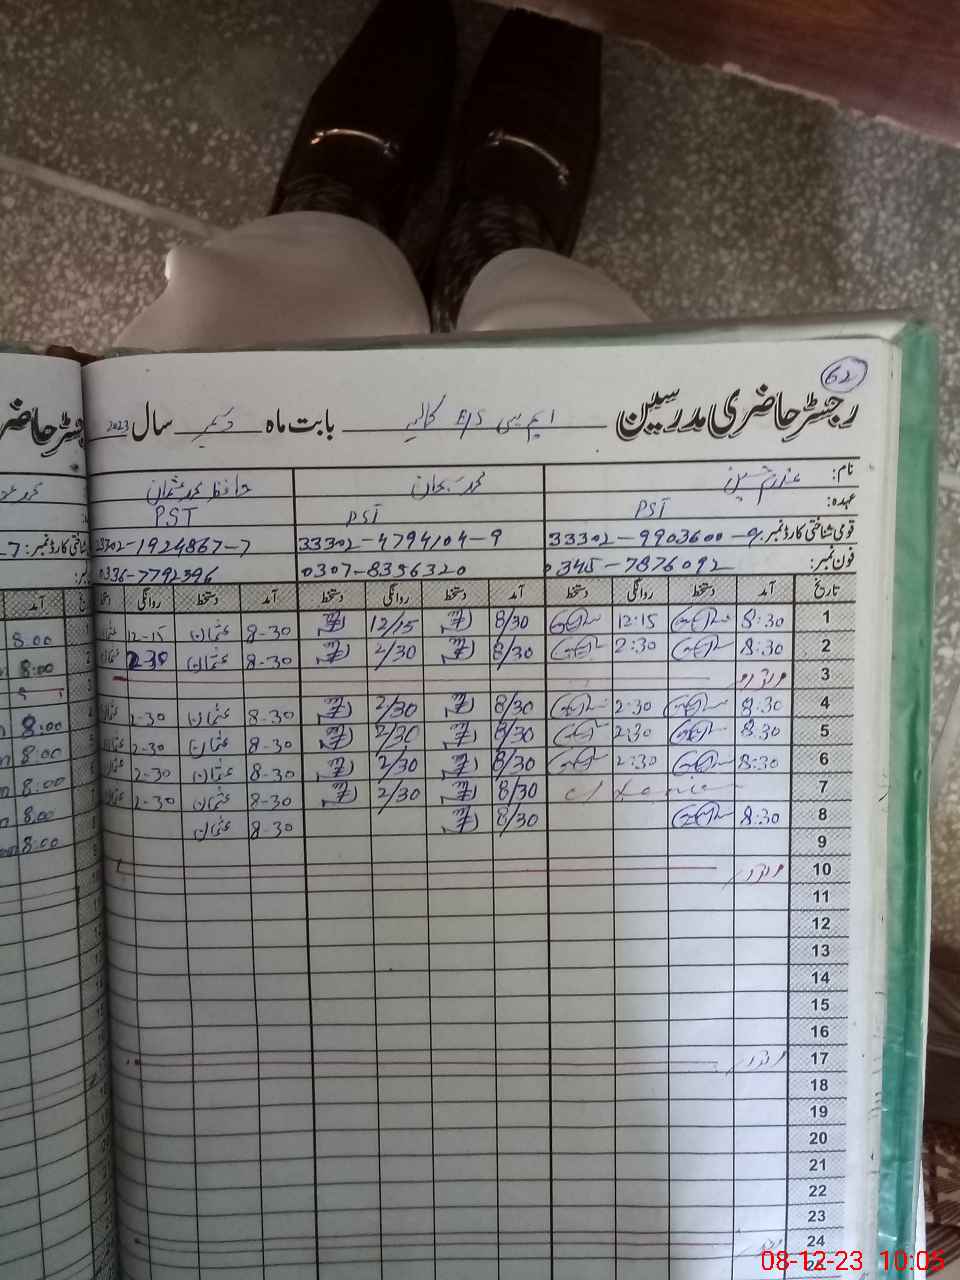 62
رجسٹر حاضری مدرسین ایم سی E/S کالیہ بابت ماہ دسمبر سال 2023
نام: محمد سبحان حافظ محمد عثمان
عہدہ: PST PST PST
قومی شناختی کارڈ نمبر: 33302-9903600-9 33302-4794104-9 33302-1924867-7
فون نمبر: 0345-7876092 0307-8356320 0336-7792596
تاریخ آمد دستخط روانگی دستخط آمد دستخط روانگی دستخط آمد دستخط روانگی دستخط
1 8:30 12:15 8/30 12/15 8-30 عثمان 12-15
2 8:30 2:30 8/30 2/30 8-30 عثمان 2-30
3 اتوار
4 8:30 2:30 8/30 2/30 8-30 عثمان 2-30
5 8:30 2:30 8/30 2/30 8-30 عثمان 2-30
6 8:30 2:30 8/30 2/30 8-30 عثمان 2-30
7 8/30 2/30 8-30 عثمان 2-30
8 8:30 8/30 8-30 عثمان
9
10 اتوار
11
12
13
14
15
16
17 اتوار
18
19
20
21
22
23
24 اتوار
25
آمد
8.00
8:00
8:00
8.00
8:00
8.00
8:00
08-12-23 10:05